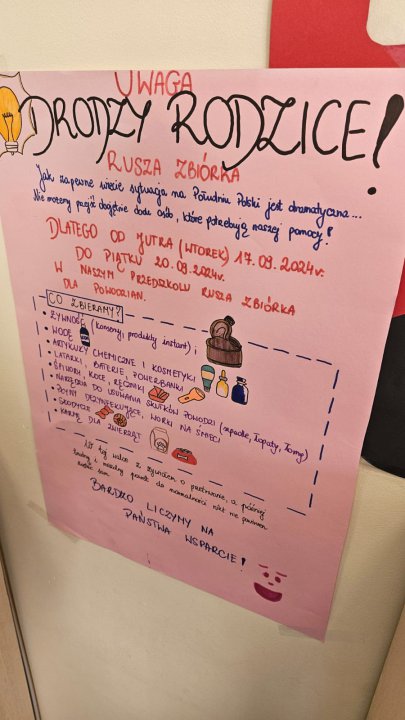 UWAGA
DRODZY RODZICE!
RUSZA ZBIÓRKA
Jak zapewne wiecie sytuacja na Południu Polski jest dramatyczna...
Nie możemy przejść obojętnie osób, które potrzebują naszej pomocy!
DLATEGO OD JUTRA (WTOREK) 17.09.2024r.
DO PIĄTKU 20.09.2024r.
W NASZYM PRZEDSZKOLU RUSZA ZBIÓRKA
DLA POWODZIAN.
CO ZBIERAMY?
• ŻYWNOŚĆ (konserwy, produkty instant),
• WODĘ
• ARTYKUŁY CHEMICZNE I KOSMETYKI
• LATARKI, BATERIE, POWERBANKI
• ŚPIWORY, KOCE, RĘCZNIKI
• NARZĘDZIA DO USUWANIA SKUTKÓW POWODZI (szpadle, łopaty, łomy)
• PŁYNY DEZYNFEKUJĄCE, WORKI NA ŚMIECI
• SŁODYCZE
• KARMĘ DLA ZWIERZĄT
W tej walce z żywiołem o przetrwanie, a później
trudny i powrót do normalności nikt nie powinien
zostać sam.
BARDZO LICZYMY NA
PAŃSTWA WSPARCIE!